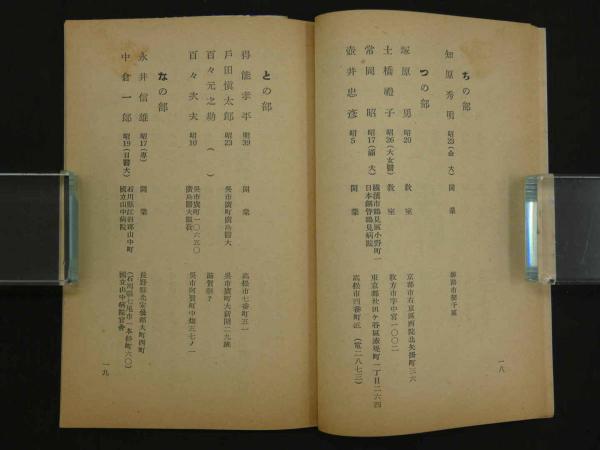 ちの部
知原秀明 昭23(金大) 開業 釧路市
つの部
塚原勇 昭20 教室 京都市右京区西院北矢掛町三六
土橋禮子 昭26(大女醫) 教室 枚方市字中宮一〇〇二
常岡昭 昭17(滿大) 横濱市鶴見區小野町一 日本鋼管鶴見病院 東京都世田ヶ谷區 町一丁目二六四
壺井忠彦 昭5 開業 高松市四番町 (電二八七三)
一八
との部
得能孝平 明39 開業 高松市七番町五一
戸田愼太郎 昭23 呉市廣町廣島醫大 呉市廣町大新開二九號
百々元之助 ( ) 滋賀縣?
百々次夫 昭10 呉市廣町一〇六五〇 廣島醫大 呉市阿賀町中畑五七ノ一
なの部
永井信雄 昭17(專) 開業 長野縣北安曇郡大町四町
中倉一郎 昭19(日醫大) 石川縣江沼郡山中町 國立山中病院 (石川縣七尾市一本杉町六〇) 國立山中病院官舎
一九